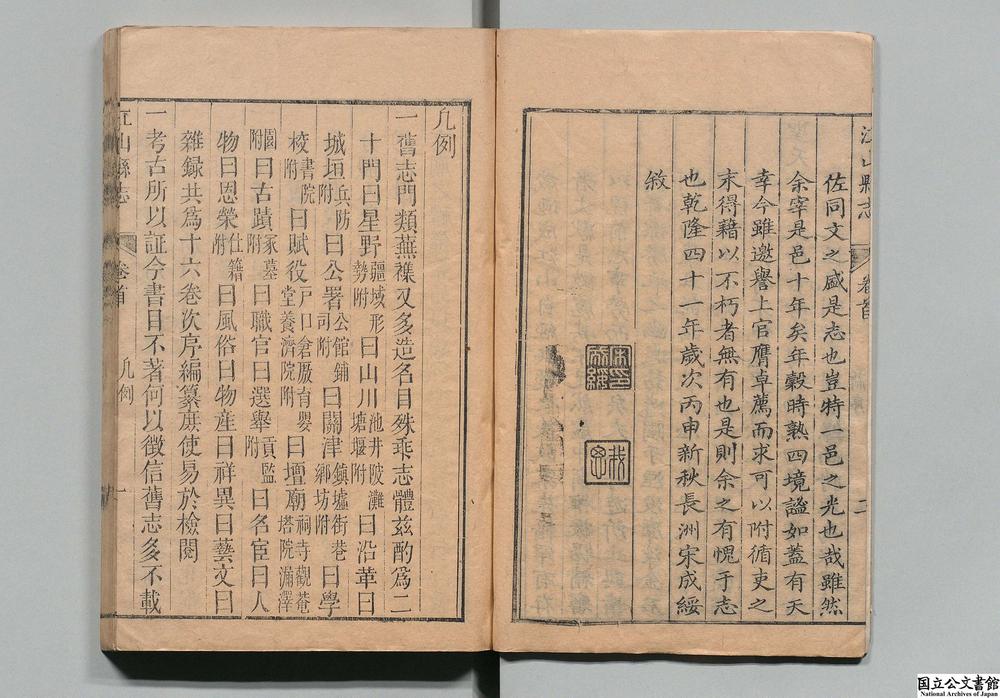 江山縣志 卷首 二
佐同文之盛是志也豈特一邑之光也哉雖然
余宰是邑十年矣年穀時熟四境謐如蓋有天
幸今雖邀譽上官膺卓薦而求可以附循吏之
末得藉以不朽者無有也是則余之有愧于志
也乾隆四十一年歲次丙申新秋長洲宋成綏
敘
凡例
一舊志門類蕪襍又多造名目殊乖志體兹酌爲二
十門曰星野疆域形勢附曰山川池井陂灘塘堰附曰沿革曰
城垣兵防附曰公署公館鋪司附曰關津鎮墟街巷鄉坊附曰學
校書院附曰賦役戸口倉厫育嬰堂養濟院附曰壇廟祠寺觀菴塔院漏澤
園附曰古蹟冢墓附曰職官曰選舉貢監附曰名宦曰人
物曰恩榮仕籍附曰風俗曰物産曰祥異曰藝文曰
雜録共爲十六卷次序編纂庶使易於檢閱
一考古所以証今書目不著何以徵信舊志多不載
江山縣志 卷首 凡例 一
国立公文書館
National Archives of Japan